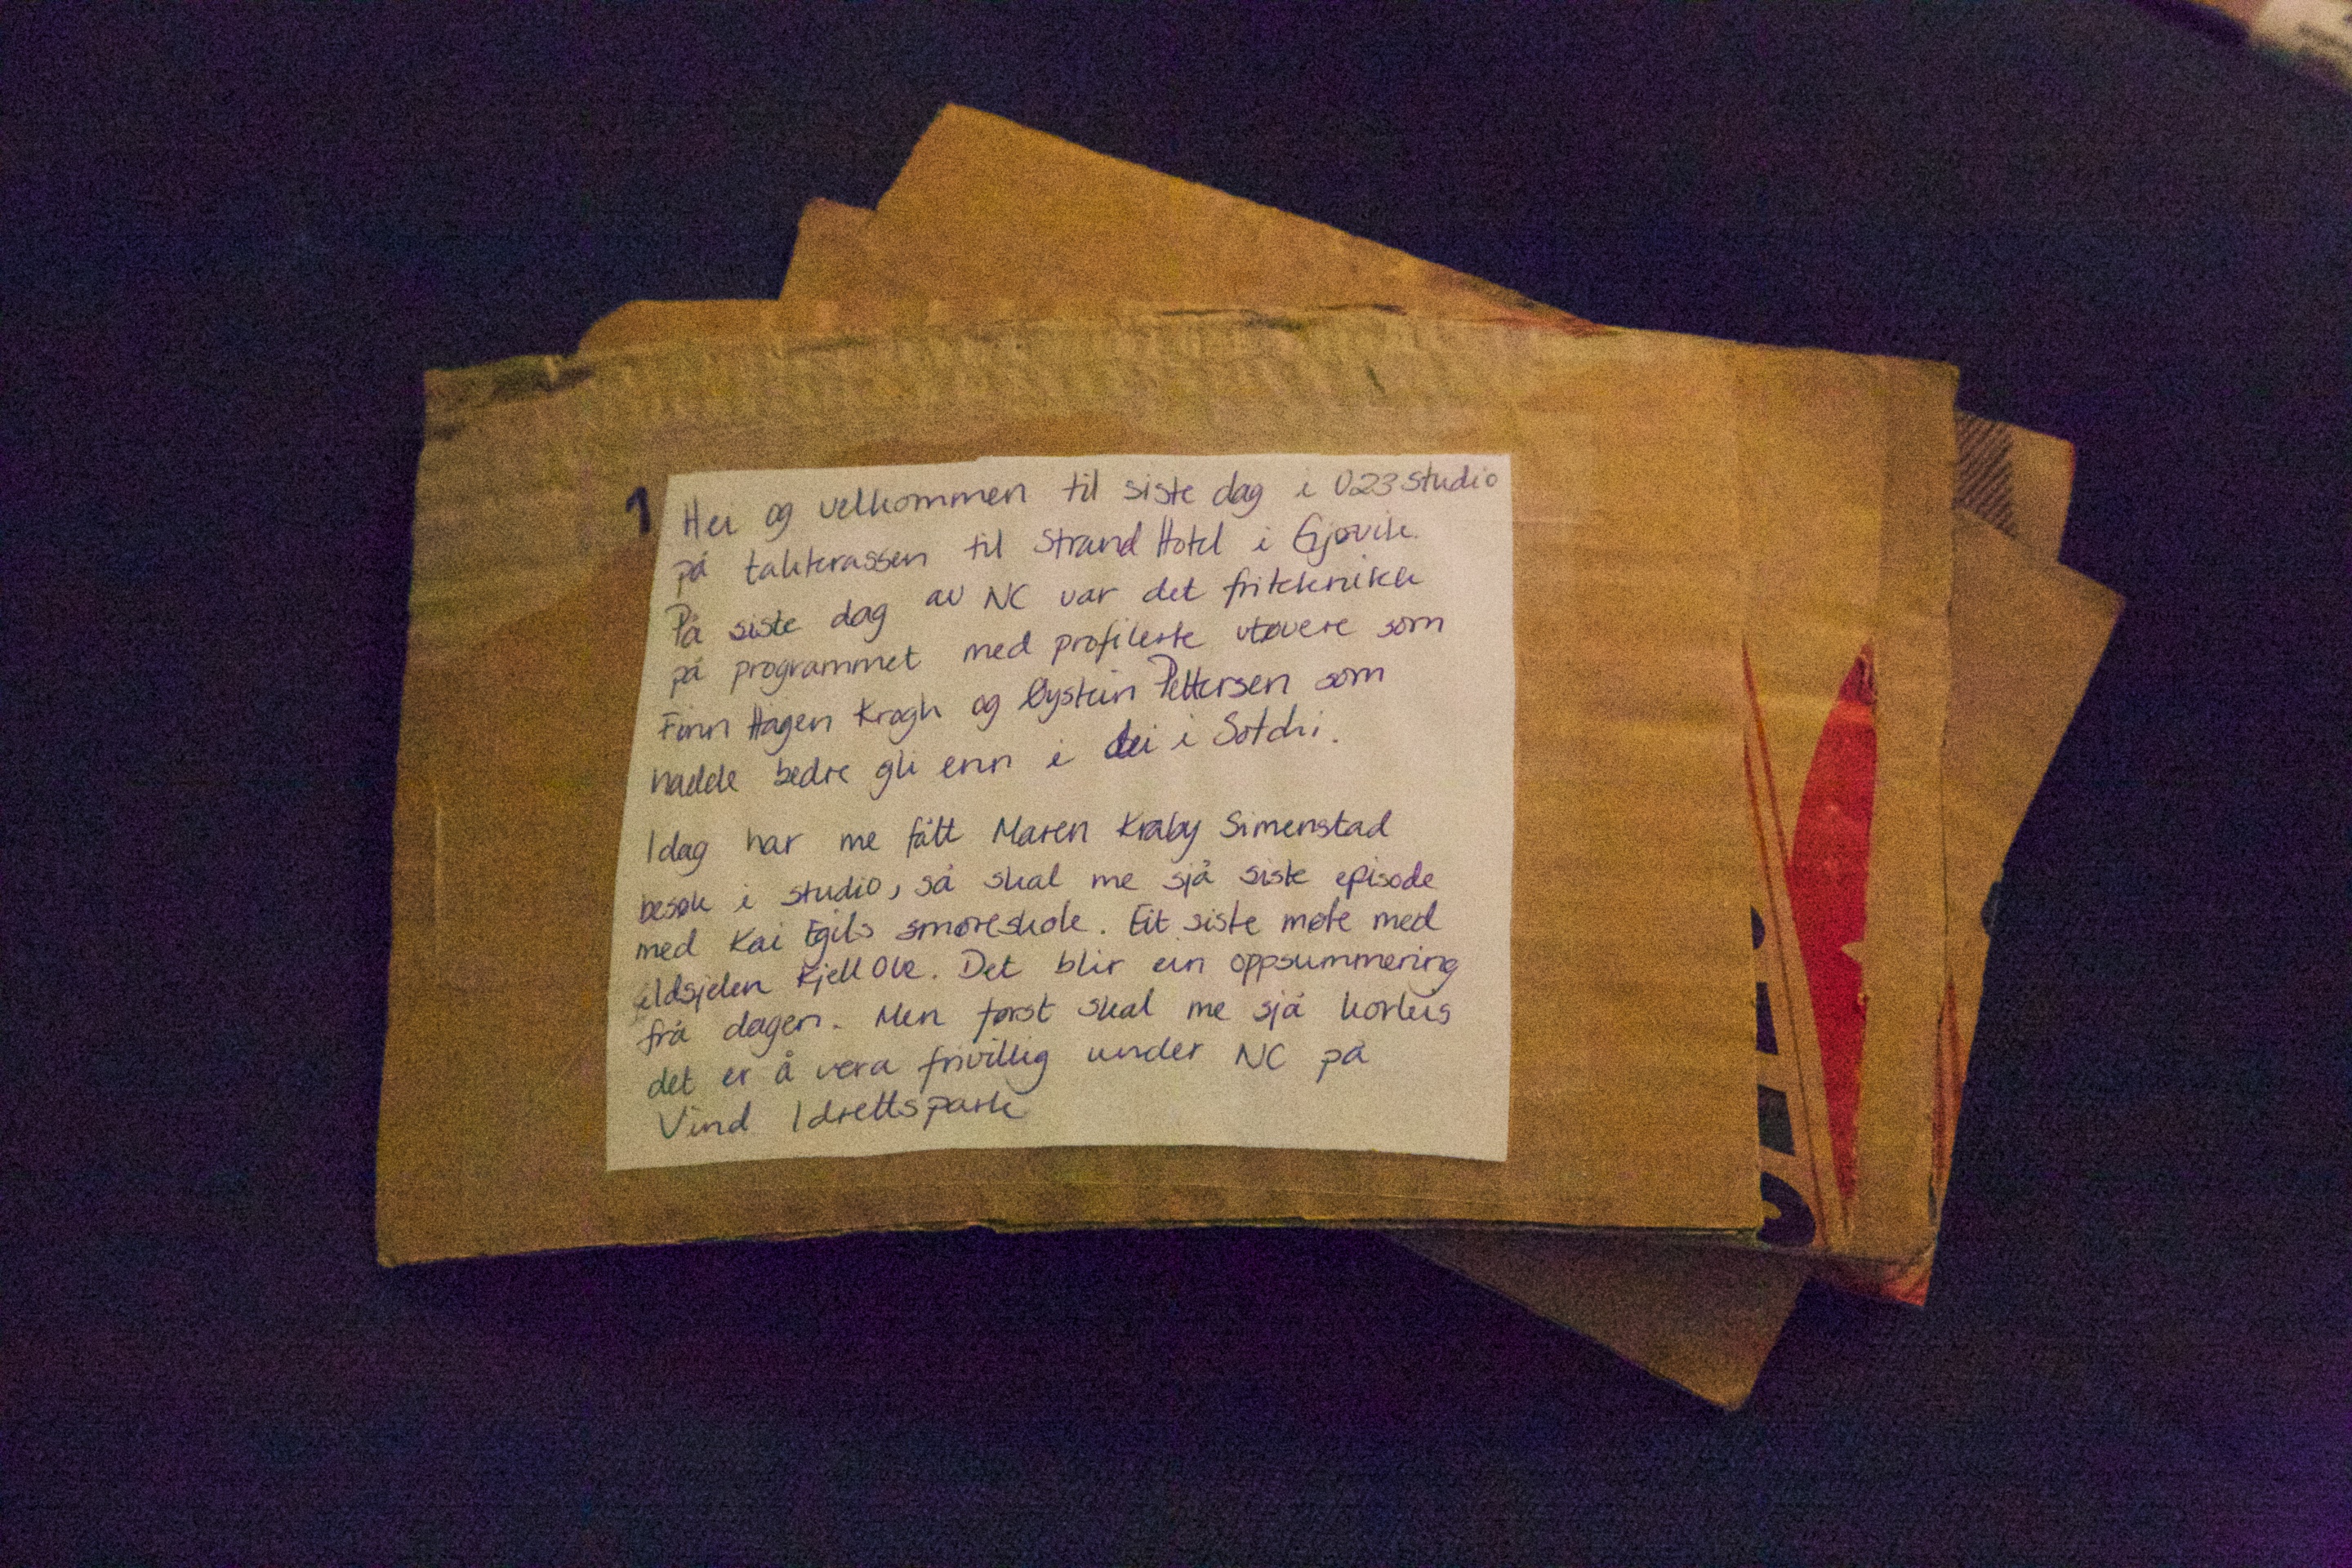 1
Hei og velkommen til siste dag i U23 studio
på takterassen til Strand Hotel i Gjøvik.
På siste dag av NC var det friteknikk
på programmet med profilerte utøvere som
Finn Hågen Krogh og Øystein Pettersen som
hadde bedre gli enn i dei i Sotchi.
Idag har me fått Maren Kraby Simenstad
besøk i studio, så skal me sjå siste episode
med Kai Egils smøreskole. Eit siste møte med
ildsjelen Kjell Ole. Det blir ein oppsummering
frå dagen. Men først skal me sjå korleis
det er å vera frivillig under NC på
Vind Idrettspark